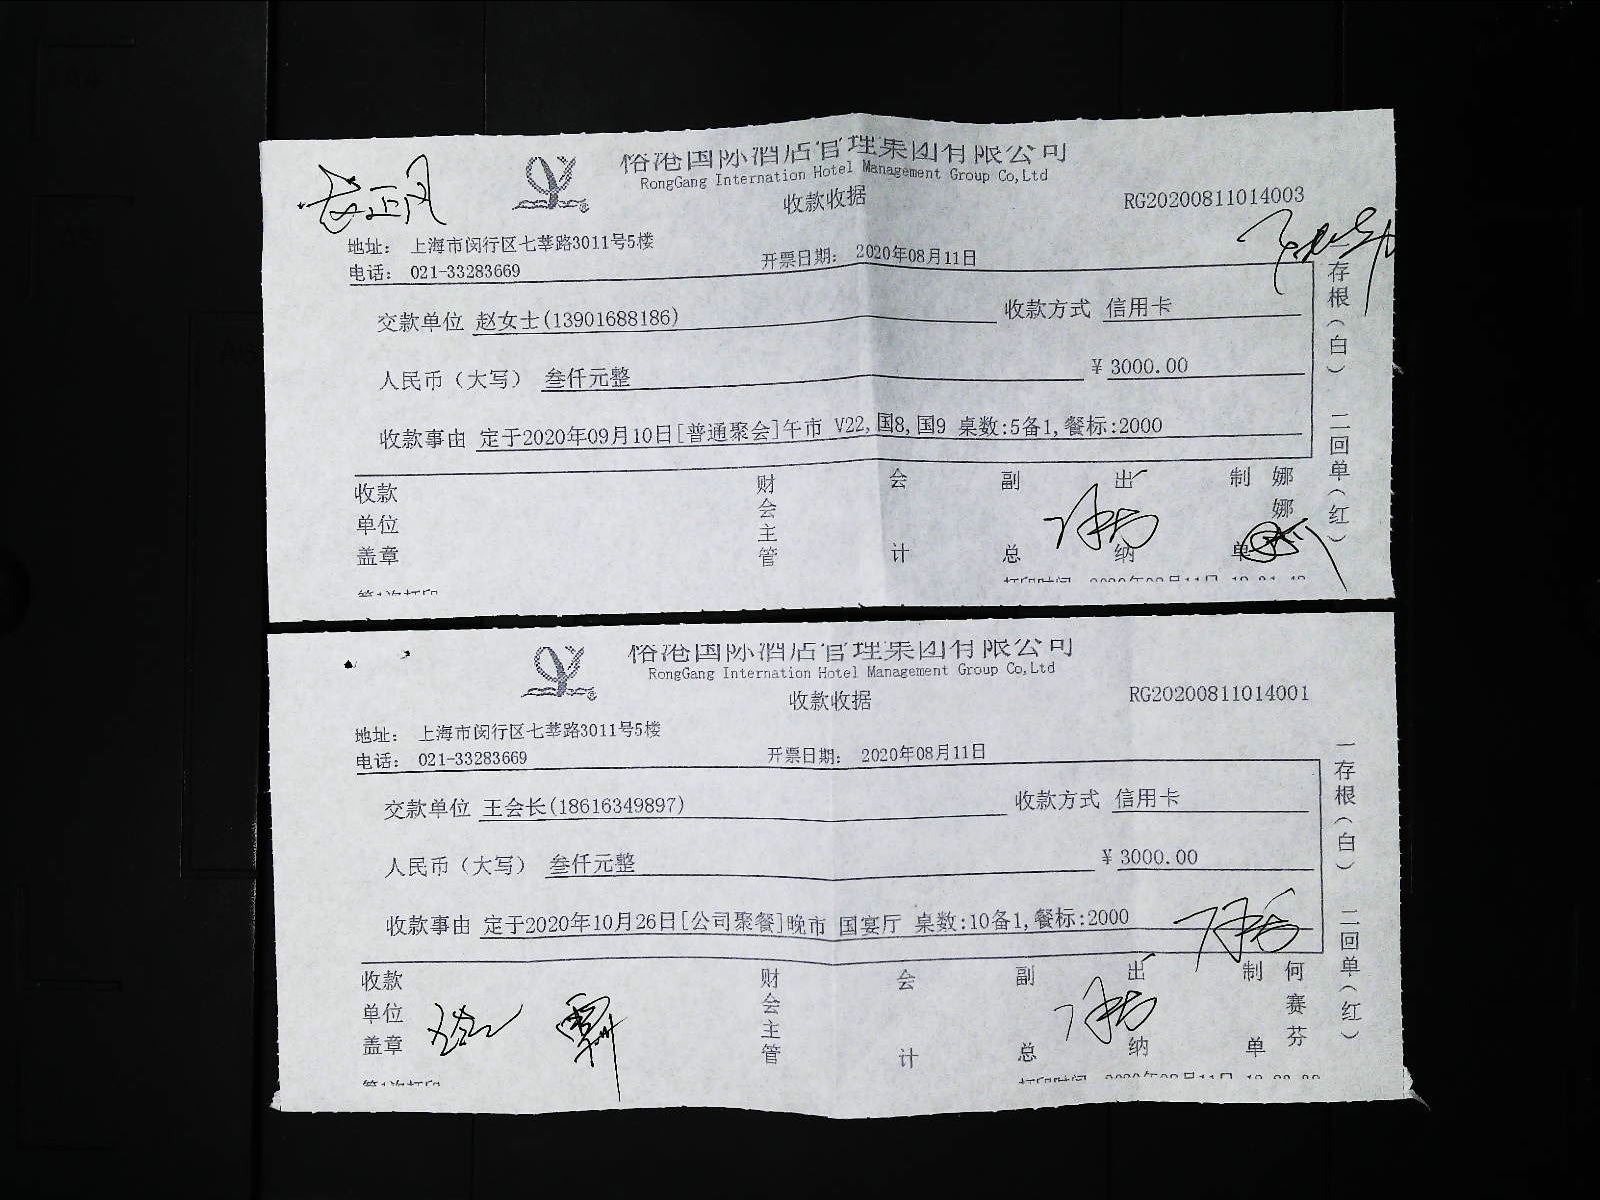 俗港国际酒店管理集团有限公司
RongGang Internation Hotel Management Group Co,Ltd
收款收据
RG20200811014003
地址： 上海市闵行区七莘路3011号5楼
电话： 021-33283669
开票日期： 2020年08月11日
交款单位 赵女士(13901688186)
收款方式 信用卡
人民币（大写） 叁仟元整
¥ 3000.00
收款事由 定于2020年09月10日[普通聚会]午市 V22,国8,国9 桌数:5备1,餐标:2000
收款单位盖章
财会主管
会计
副总
出纳
制单
娜娜
存根（白） 二回单（红）
第1次打印
俗港国际酒店管理集团有限公司
RongGang Internation Hotel Management Group Co,Ltd
收款收据
RG20200811014001
地址： 上海市闵行区七莘路3011号5楼
电话： 021-33283669
开票日期： 2020年08月11日
交款单位 王会长(18616349897)
收款方式 信用卡
人民币（大写） 叁仟元整
¥ 3000.00
收款事由 定于2020年10月26日[公司聚餐]晚市 国宴厅 桌数:10备1,餐标:2000
收款单位盖章
财会主管
会计
副总
出纳
制单
何赛芬
一存根（白） 二回单（红）
第1次打印